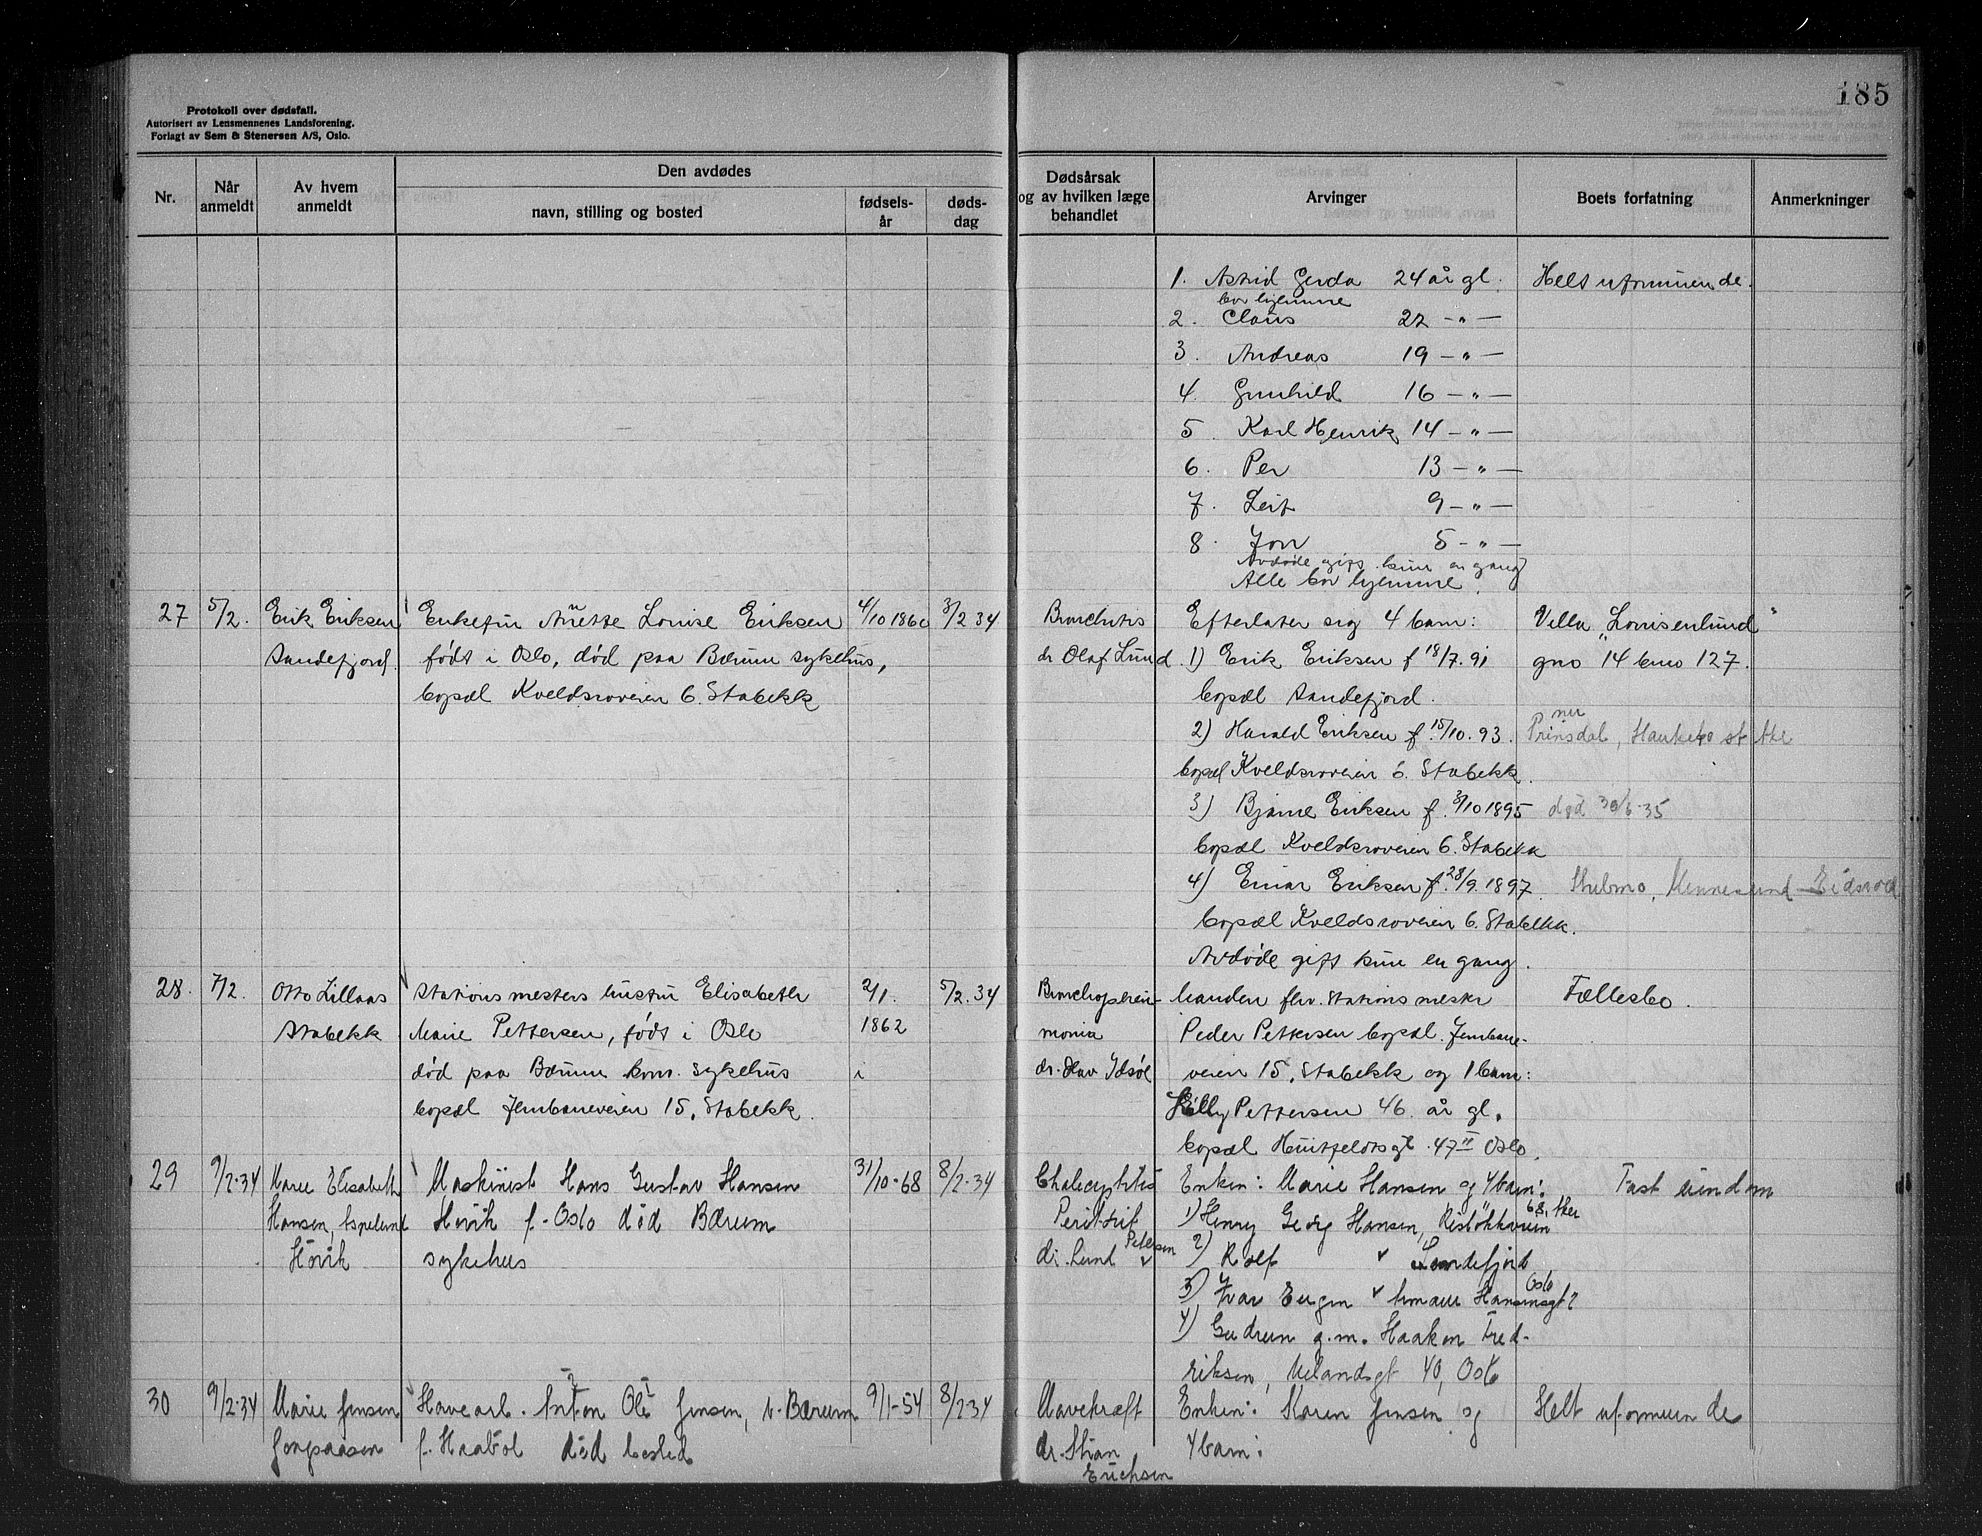 185
Protokoll over dødsfall.
Autorisert av Lensmennenes Landsforening.
Forlagt av Sem & Stenersen A/S, Oslo.
Nr.
Når anmeldt
Av hvem anmeldt
Den avdødes
navn, stilling og bosted
fødsels-
år
døds-
dag
Dødsårsak
og av hvilken læge
behandlet
Arvinger
Boets forfatning
Anmerkninger
1. Astrid Gerda 24 år gl. Helt uformuende.
bor hjemme
2. Claus 22 -"-
3. Andreas 19 -"-
4. Gunhild 16 -"-
5. Karl Henrik 14 -"-
6. Per 13 -"-
7. Leif 9 -"-
8. Jon 5 -"-
Avdøde gift kun en gang
Alle bor hjemme.
27 5/2. Erik Eriksen Enkefru Anette Louise Eriksen 4/10 1860 3/2 34 Bronchitis Efterlater sig 4 barn: Villa "Louisenlund"
Sandefjord. født i Oslo, død paa Bærum sykehus, dr Olaf Lund. 1) Erik Eriksen f 18/7. 91 gno 14 bno 127.
bopæl Kveldsroveien 6. Stabekk bopæl Sandefjord.
nu
2) Harald Eriksen f. 15/10. 93. Prinsdal, Hauketo st Aker
bopæl Kveldsroveien 6. Stabekk.
3) Bjarne Eriksen f. 3/10 1895 død 30/6-35
bopæl Kveldsroveien 6. Stabekk
4) Einar Eriksen f. 28/9. 1897. Minnesund Eidsvold
bopæl Kveldsroveien 6. Stabekk.
Avdøde gift kun en gang.
28. 7/2. Otto Lillaas Stationsmesters hustru Elisabeth 2/1. 5/2. 34 Bronchopneu- Manden fhv. Stationsmester Fællesbo.
Stabekk Marie Pettersen, født i Oslo 1862 monia Peder Pettersen bopæl. Jernbane-
død paa Bærum kom. sykehus i dr. Olav veien 15, Stabekk og 1 barn:
bopæl Jernbaneveien 15, Stabekk. Pettersen 46 år gl.
bopæl Huitfeldtsgt 47 II Oslo.
29 9/2-34 Marie Elisabeth Maskinist Hans Gustav Hansen 31/10-68 8/2-34 Enken: Marie Hansen og 4 barn: Fast eiendom
Hansen, Espelund Høvik f. Oslo død Bærum 1) Henry Georg Hansen, 68, Aker
Høvik sykehus dr. Lund Petersen 2) Rolf " Sandefjord
3) Ivar Eugen " Hansensgt 2 Oslo
4) Gudrun g.m. Haakon Fred-
riksen, Uelandsgt 40, Oslo
30 9/2-34 Marie Jensen Havearb. Anton Ole Jensen, v. Bærum 9/1-54 8/2 34 Mavekræft Enken: Karen Jensen og Helt uformuende
Jongsaasen f. Haabøl død bosted dr. Stian 4 barn:
Erichsen